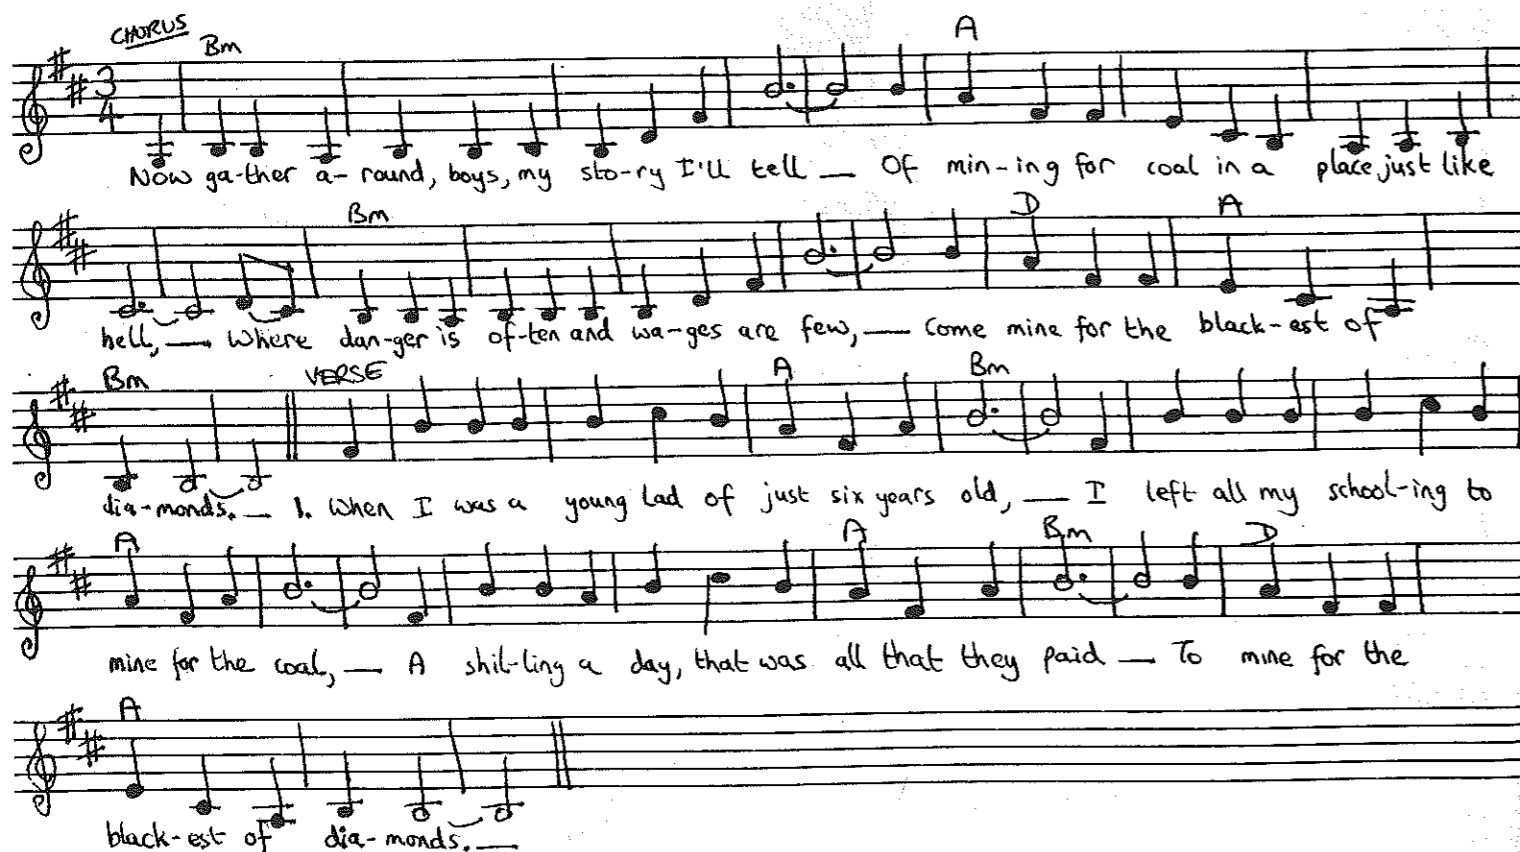 CHORUS Bm A
3 4
Now ga-ther a-round, boys, my sto-ry I'll tell — Of min-ing for coal in a place just like
Bm D A
hell, — Where dan-ger is of-ten and wa-ges are few, — Come mine for the black-est of
Bm VERSE A Bm
dia-monds. — 1. When I was a young lad of just six years old, — I left all my school-ing to
A A Bm D
mine for the coal, — A shil-ling a day, that was all that they paid — To mine for the
A
black-est of dia-monds. —